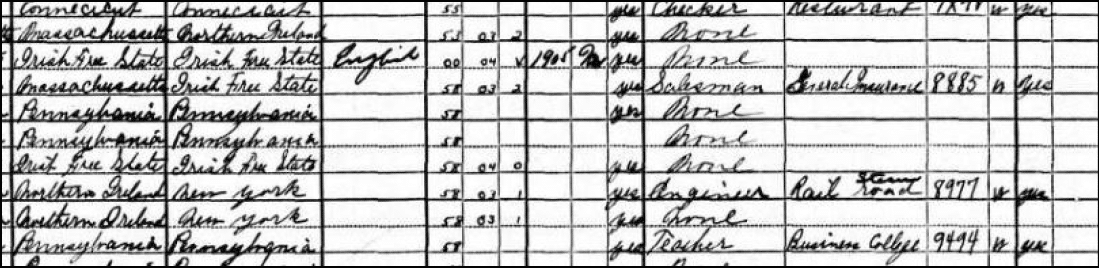 Connecticut Connecticut 55 yes Checker Restaurant W yes
Massachusetts Northern Ireland 53 03 2 yes None
Irish Free State Irish Free State English 00 04 V 1905 Na yes None
Massachusetts Irish Free State 58 03 2 yes Salesman General Insurance 8885 W yes
Pennsylvania Pennsylvania 58 yes None
Pennsylvania Pennsylvania 58 None
Irish Free State Irish Free State 58 04 0 yes None
Northern Ireland New York 58 03 1 yes Engineer Rail Steam road 8977 W yes
Northern Ireland New York 58 03 1 yes None
Pennsylvania Pennsylvania 58 yes Teacher Business College 9494 W yes